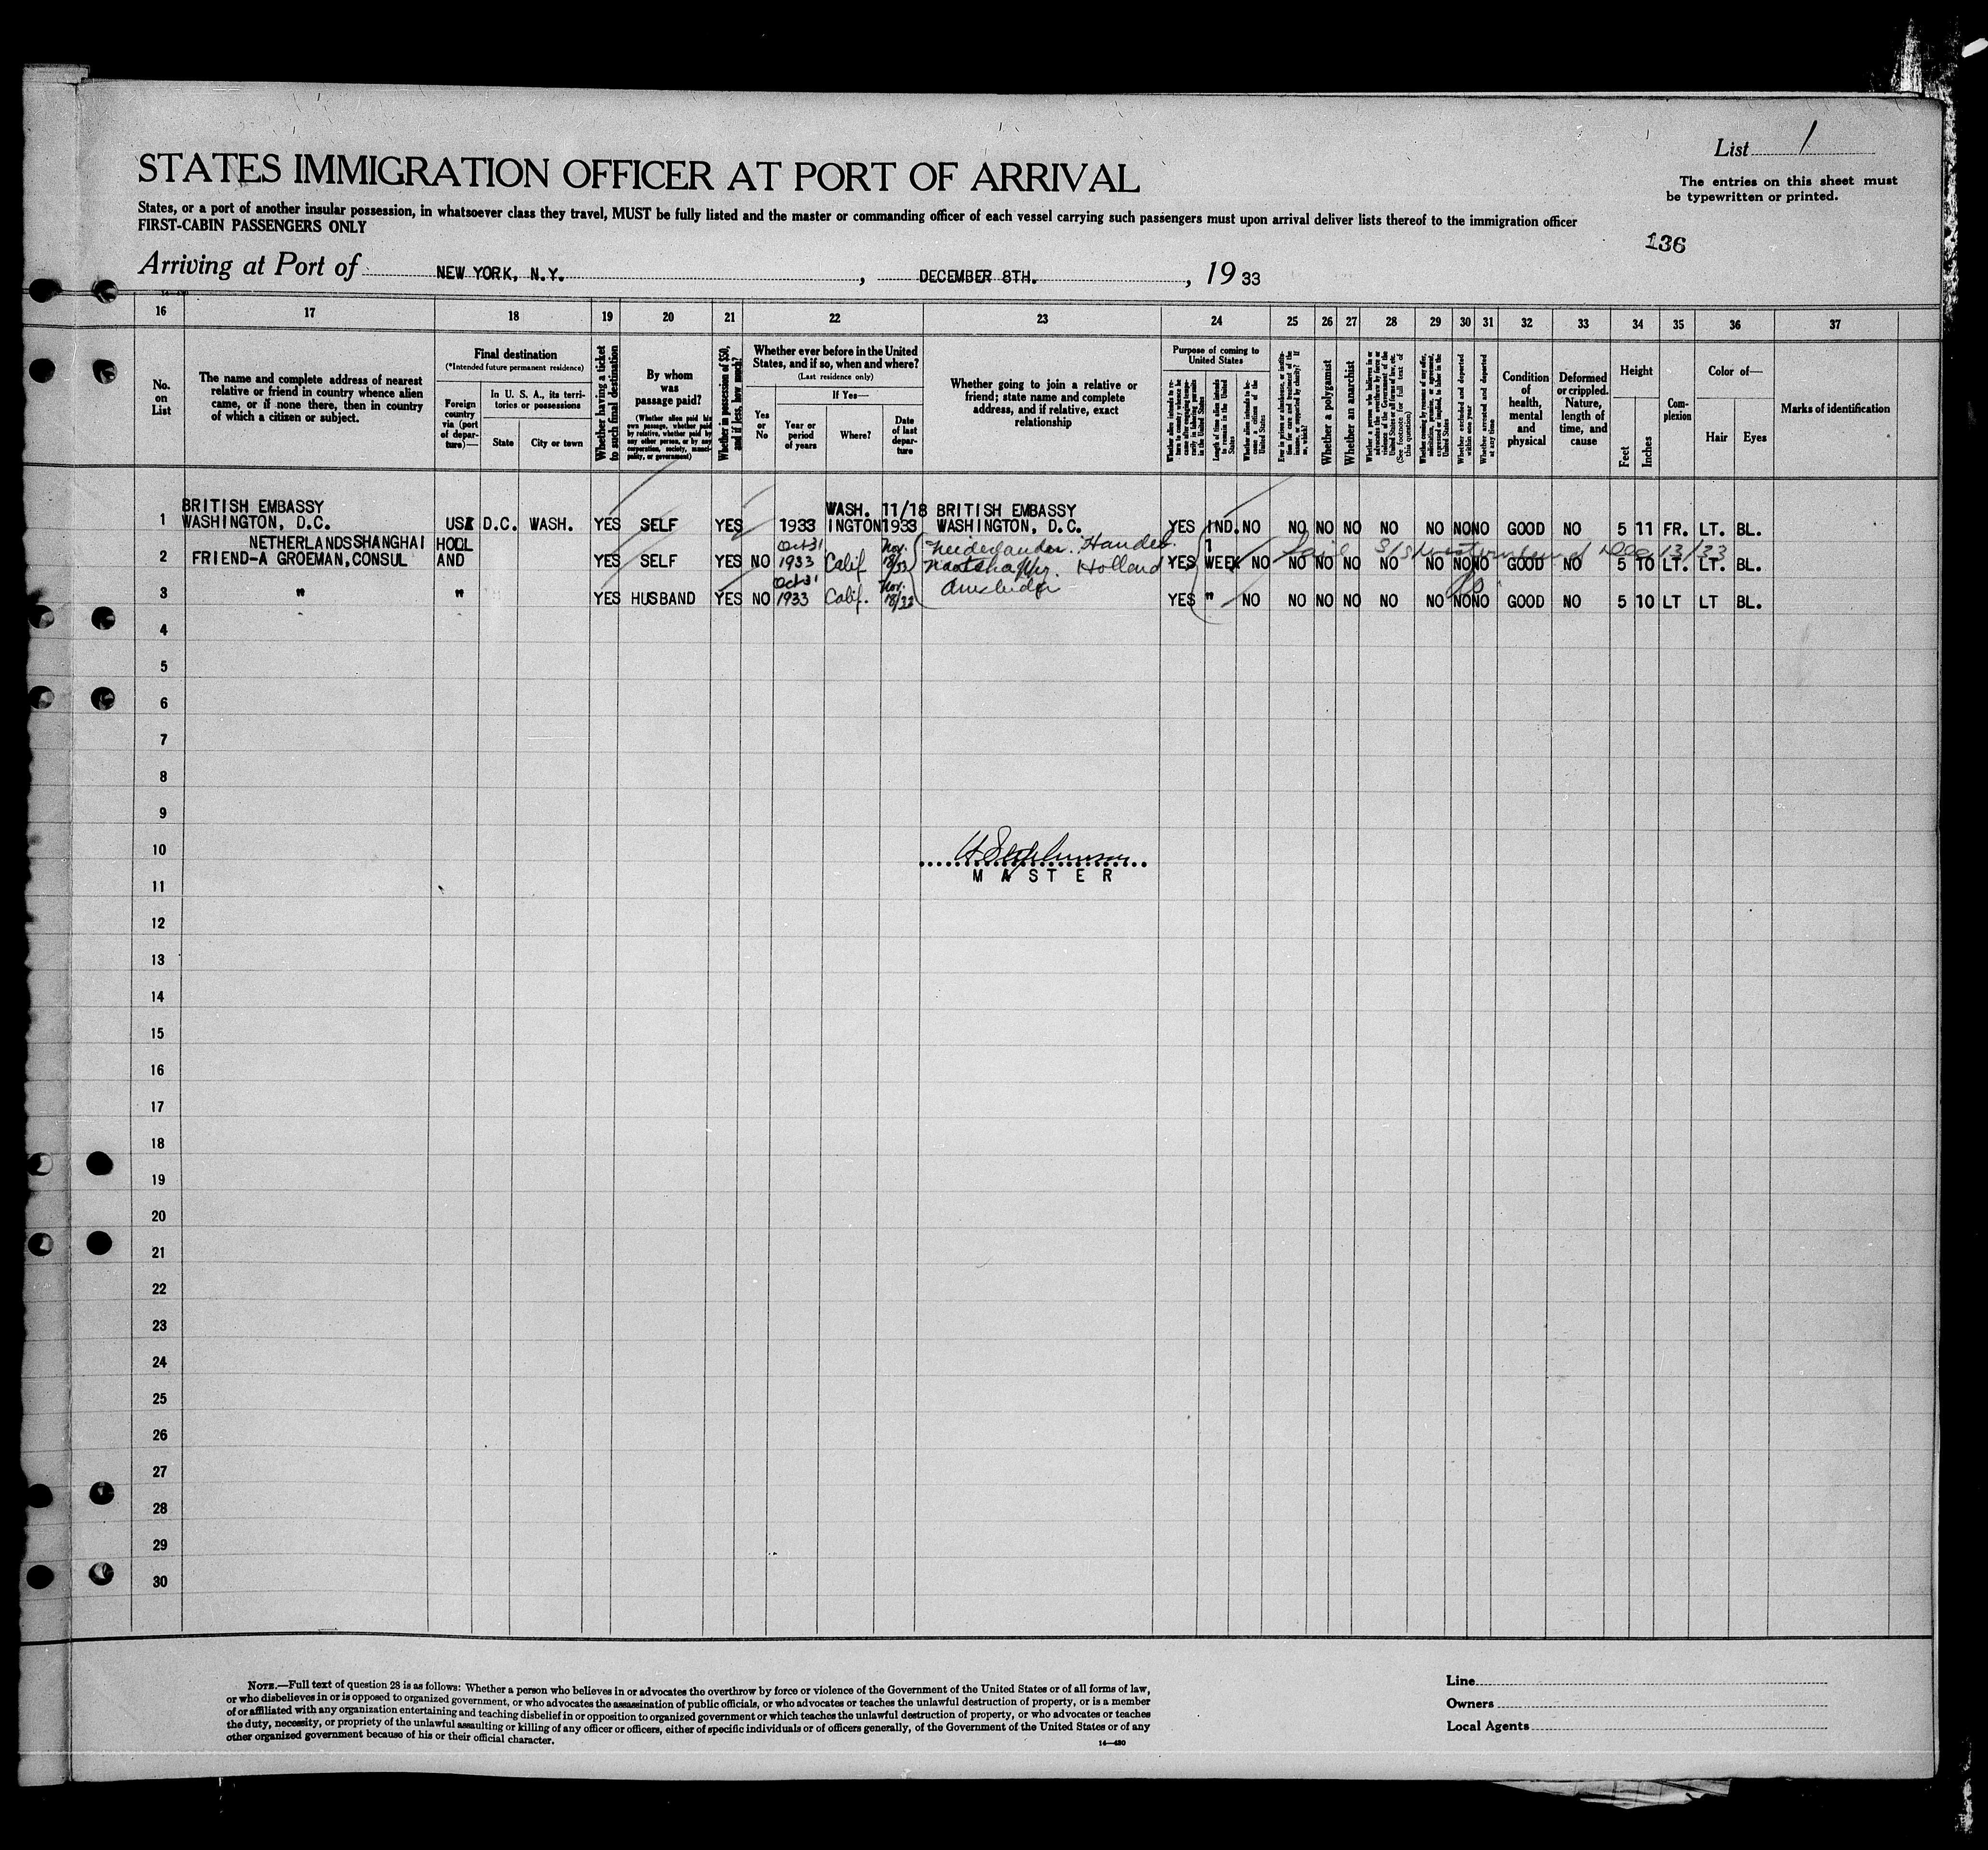 List 1
STATES IMMIGRATION OFFICER AT PORT OF ARRIVAL
The entries on this sheet must
be typewritten or printed.
States, or a port of another insular possession, in whatsoever class they travel, MUST be fully listed and the master or commanding officer of each vessel carrying such passengers must upon arrival deliver lists thereof to the immigration officer
FIRST-CABIN PASSENGERS ONLY
136
Arriving at Port of NEW YORK, N.Y. , DECEMBER 8TH. , 19 33
16 17 18 19 20 21 22 23 24 25 26 27 28 29 30 31 32 33 34 35 36 37
No.
on
List
The name and complete address of nearest
relative or friend in country whence alien
came, or if none there, then in country
of which a citizen or subject.
Final destination
(*Intended future permanent residence)
Foreign
country
via (port
of depar-
ture)—
In U. S. A., its terri-
tories or possessions
State
City or town
Whether having a ticket
to such final destination
By whom
was
passage paid?
(Whether alien paid his
own passage, whether paid
by relative, whether paid by
any other person, or by any
corporation, society, munici-
pality, or government)
Whether in possession of $50,
and if less, how much?
Whether ever before in the United
States, and if so, when and where?
(Last residence only)
Yes
or
No
If Yes—
Year or
period
of years
Where?
Date
of last
depar-
ture
Whether going to join a relative or
friend; state name and complete
address, and if relative, exact
relationship
Purpose of coming to
United States
Length of time alien intends
to remain in the United
States
Whether alien intends to be-
come a citizen of the
United States
Whether a polygamist
Whether an anarchist
Whether excluded and deported
within one year
Whether arrested and deported
at any time
Condition
of
health,
mental
and
physical
Deformed
or crippled.
Nature,
length of
time, and
cause
Height
Feet
Inches
Com-
plexion
Color of—
Hair
Eyes
Marks of identification
BRITISH EMBASSY WASH. 11/18 BRITISH EMBASSY
1 WASHINGTON, D.C. USA D.C. WASH. YES SELF YES 1933 INGTON 1933 WASHINGTON, D.C. YES IND. NO NO NO NO NO NO NO NO GOOD NO 5 11 FR. LT. BL.
NETHERLANDS SHANGHAI HOLL Oct 31 Nov. 1
2 FRIEND-A GROEMAN, CONSUL AND YES SELF YES NO 1933 Calif 18/33 Holland YES WEEK NO NO NO NO NO NO NO NO GOOD NO 5 10 LT. LT. BL.
Oct 31 Nov.
3 " " YES HUSBAND YES NO 1933 Calif. 18/33 YES " NO NO NO NO NO NO NO NO GOOD NO 5 10 LT LT BL.
4
5
6
7
8
9
10
MASTER
11
12
13
14
15
16
17
18
19
20
21
22
23
24
25
26
27
28
29
30
NOTE.—Full text of question 28 is as follows: Whether a person who believes in or advocates the overthrow by force or violence of the Government of the United States or of all forms of law,
or who disbelieves in or is opposed to organized government, or who advocates the assassination of public officials, or who advocates or teaches the unlawful destruction of property, or is a member
of or affiliated with any organization entertaining and teaching disbelief in or opposition to organized government or which teaches the unlawful destruction of property, or who advocates or teaches
the duty, necessity, or propriety of the unlawful assaulting or killing of any officer or officers, either of specific individuals or of officers generally, of the Government of the United States or of any
other organized government because of his or their official character.
14—430
Line
Owners
Local Agents